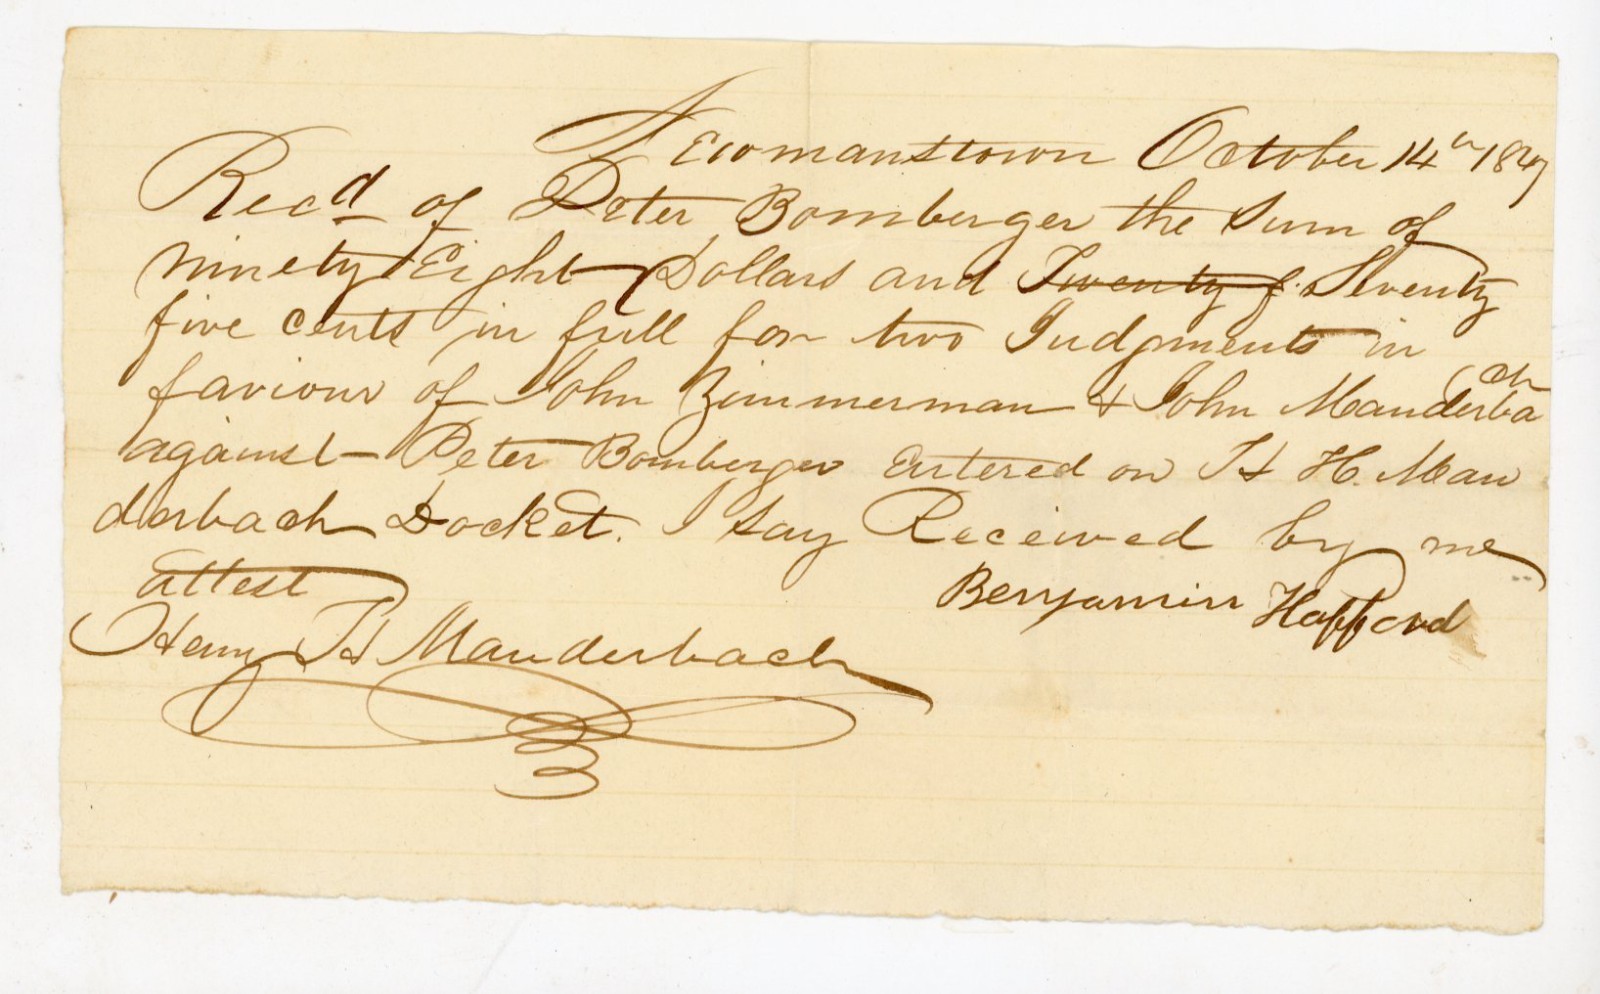 Newmanstown October 14th 1847
Recd of Peter Bomberger the Sum of
ninety Eight Dollars and Twenty f. Seventy
five cents in full for two Judgments in
faviour of John Zimmerman & John Manderbach
against Peter Bomberger Entered on H H. Man
derbach Docket. I say Received by me
attest Benjamin Hafford
Henry H Manderbach